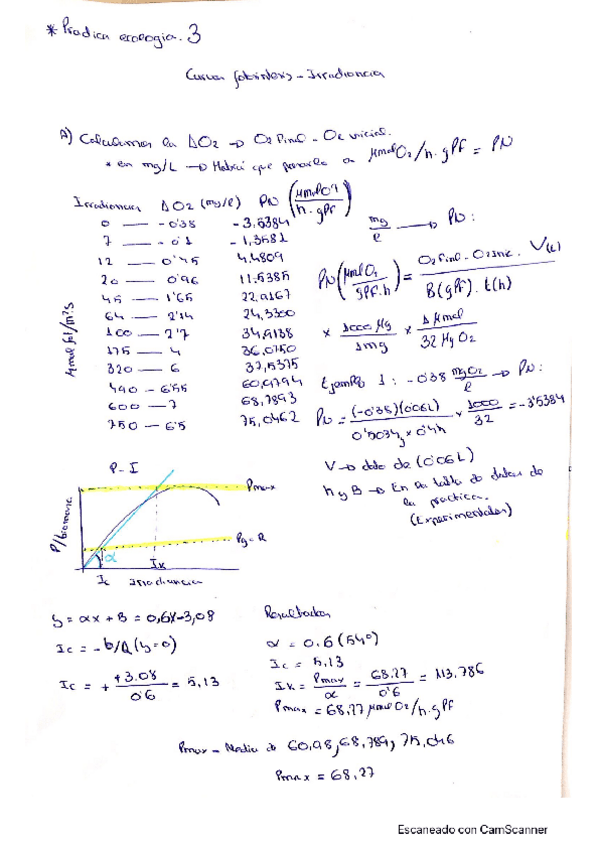 * Practica ecologia. 3
Curvas fotosintesis - Irradiancia
A) Calculamos la ΔO2 → O2 Final - O2 inicial.
* en mg/L → Habrá que pasarlo a μmolO2/h·gPF = PN
Irradiancia ΔO2 (mg/l) PN (μmolO2/h·gPF)
μmol fot/m²·s
0 — -0'38 -3,5384
7 — -0'1 -1,3581
12 — 0'45 4.4809
20 — 0'96 11.5385
45 — 1'65 22,9167
64 — 2'14 24,3300
100 — 2'7 34,9138
175 — 4 36,0750
320 — 6 37,5375
490 — 6'55 60,9794
600 — 7 68,7893
750 — 6'5 75,0462
mg/l → PN:
PN (μmol O2/gPF·h) = O2 Final - O2 Inic. V(L) / B(gPF) . t(h)
x 1000 μg/1mg x 1 μmol/32 μg O2
Ejemplo 1: -0'38 mgO2/l → PN:
PN = (-0'38)(0'06L)/0'5034g x 0'4h x 1000/32 = -3'5384
V → dato de (0'06L)
h y B → En la tabla de datos de
la practica.
(Experimentales)
P - I
P/biomasa
Pmax
Pg = R
α
Ic Ik
Irradiancia
y = αx + B = 0,6x-3,08
Ic = -b/a (y=0)
Ic = + +3.08/0'6 = 5,13
Resultados
α = 0.6 (54º)
Ic = 5,13
Ik = Pmax/α = 68.27/0'6 = 113,786
Pmax = 68,27 μmol O2/h·gPF
Pmax - Media de 60,98, 68,789, 75,046
Pmax = 68,27
Escaneado con CamScanner